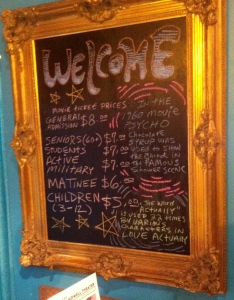 WELCOME
MOVIE TICKET PRICES
GENERAL ADMISSION $8.00
SENIORS (60+) $7.00
STUDENTS $7.00
ACTIVE MILITARY $7.00
MATINEE $6.00
CHILDREN (3-12) $5.00
IN THE
1960 MOVIE
PSYCHO
CHOCOLATE
SYRUP WAS
USED TO SHOW
THE BLOOD IN
THE FAMOUS
SHOWER SCENE
THE WORD
"ACTUALLY"
IS USED 22 TIMES
BY VARIOUS
CHARACTERS IN
LOVE ACTUALLY